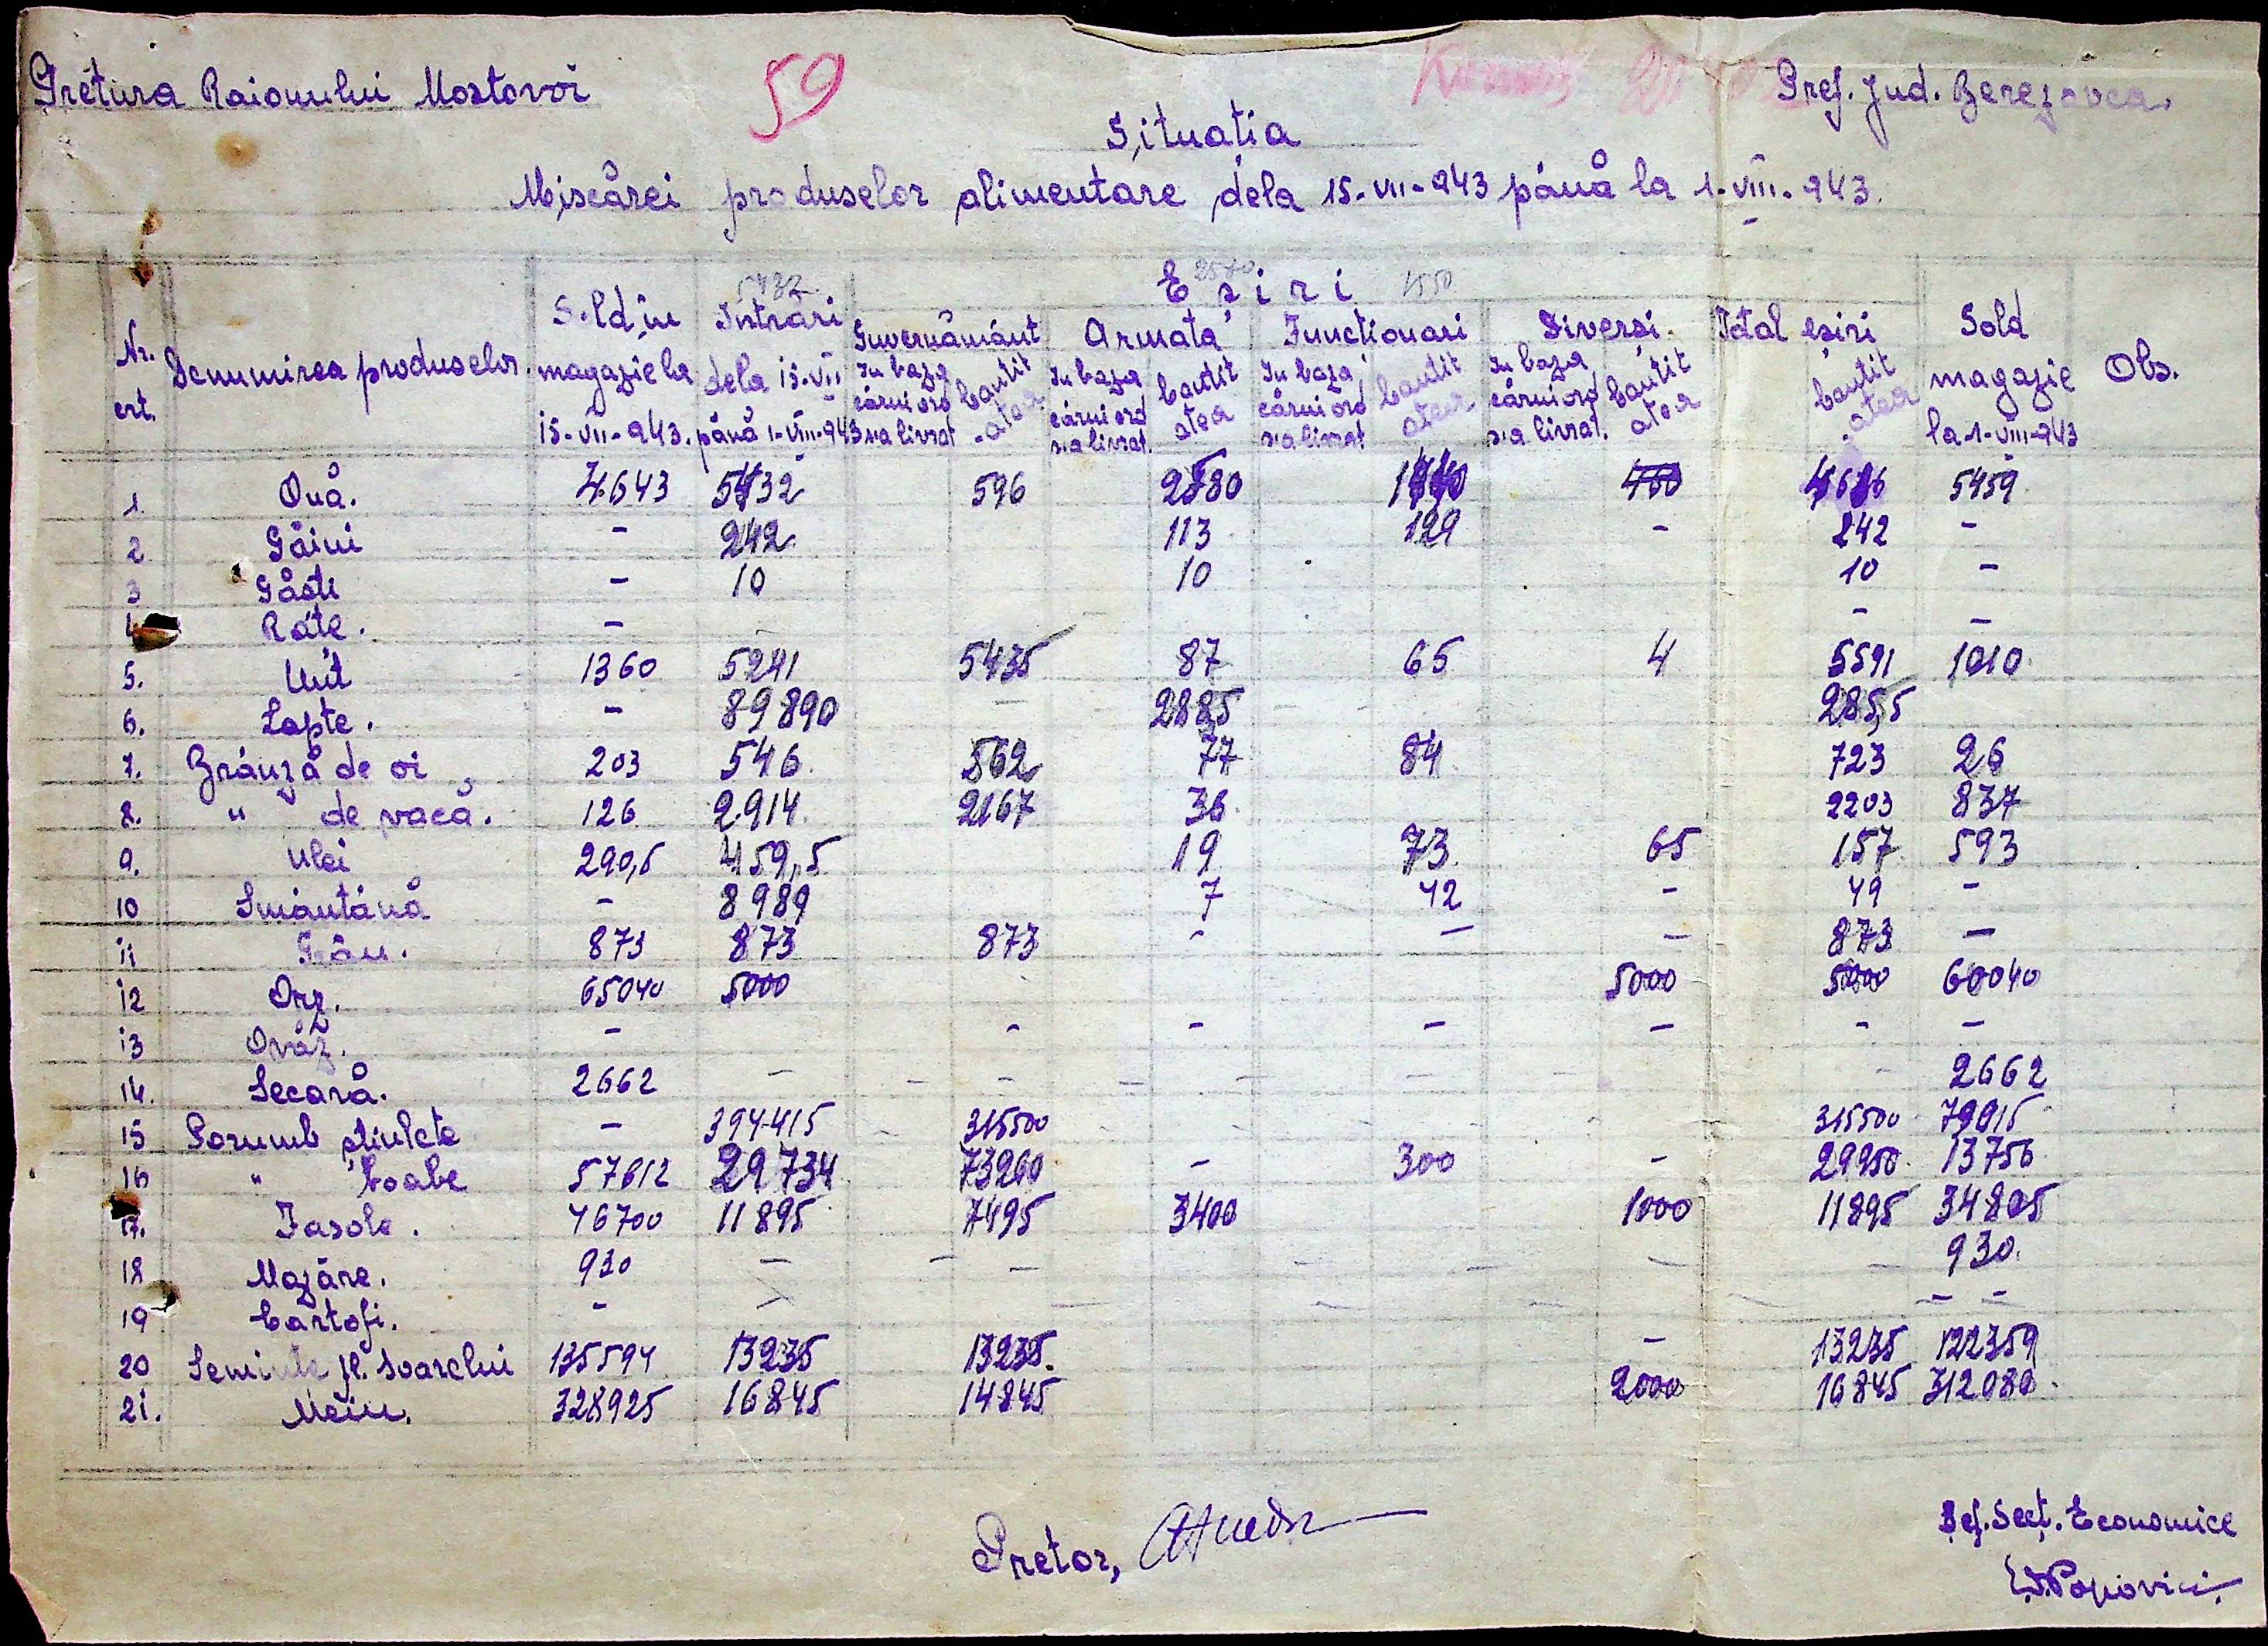 Pretura Raionului Mostovoi
59
Pref. Jud. Berezovca.
Situatia
Mișcărei produselor alimentare dela 15-VII-943 până la 1-VIII-943.
Nr. crt. Denumirea produselor. Sold în magazie la 15-VII-943. Intrări dela 15-VII până 1-VIII-943 Eșiri Total eșiri Cantitatea Sold magazie la 1-VIII-943 Obs.
5432 2580 1550
Guvernământ Armată Functionari Diversi
In baza cărui ord s'a livrat Cantitatea In baza cărui ord s'a livrat. Cantitatea In baza cărui ord s'a livrat Cantitatea In baza cărui ord s'a livrat. Cantitatea
1. Ouă. 4643 5432 596 2580 5459
2 Găini - 242 113 129 - 242 -
3 Gâște - 10 10 10 -
4 Rațe. - - -
5. Unt 1360 5241 5435 87 65 4 5591 1010
6. Lapte. - 89890 2885 2885
7. Brânză de oi 203 546 562 77 84 723 26
8. " de vacă. 126 2914 2167 36 2203 837
9. Ulei 290,5 459,5 19 73 65 157 593
10 Smântână - 8989 7 42 - 49 -
11 Grâu. 873 873 873 - - - 873 -
12 Orz. 65040 5000 5000 5000 60040
13 Ovăz. - - - - - - -
14. Secară. 2662 - - - - - - - - 2662
15 Porumb știulete - 394415 315500 315500 79915
16 " boabe 57612 29734 73260 - 300 - 29950 13756
17. Fasole. 46700 11895 7495 3400 1000 11895 34805
18 Mazăre. 930 - - - - - - - 930
19 Cartofi. - - -
20 Seminte fl. Soarelui 135594 13235 13235. - 13235 122359
21. Meiu. 328925 16845 14845 2000 16845 312080
Pretor,
Șef. Secț. Economice
Popovici